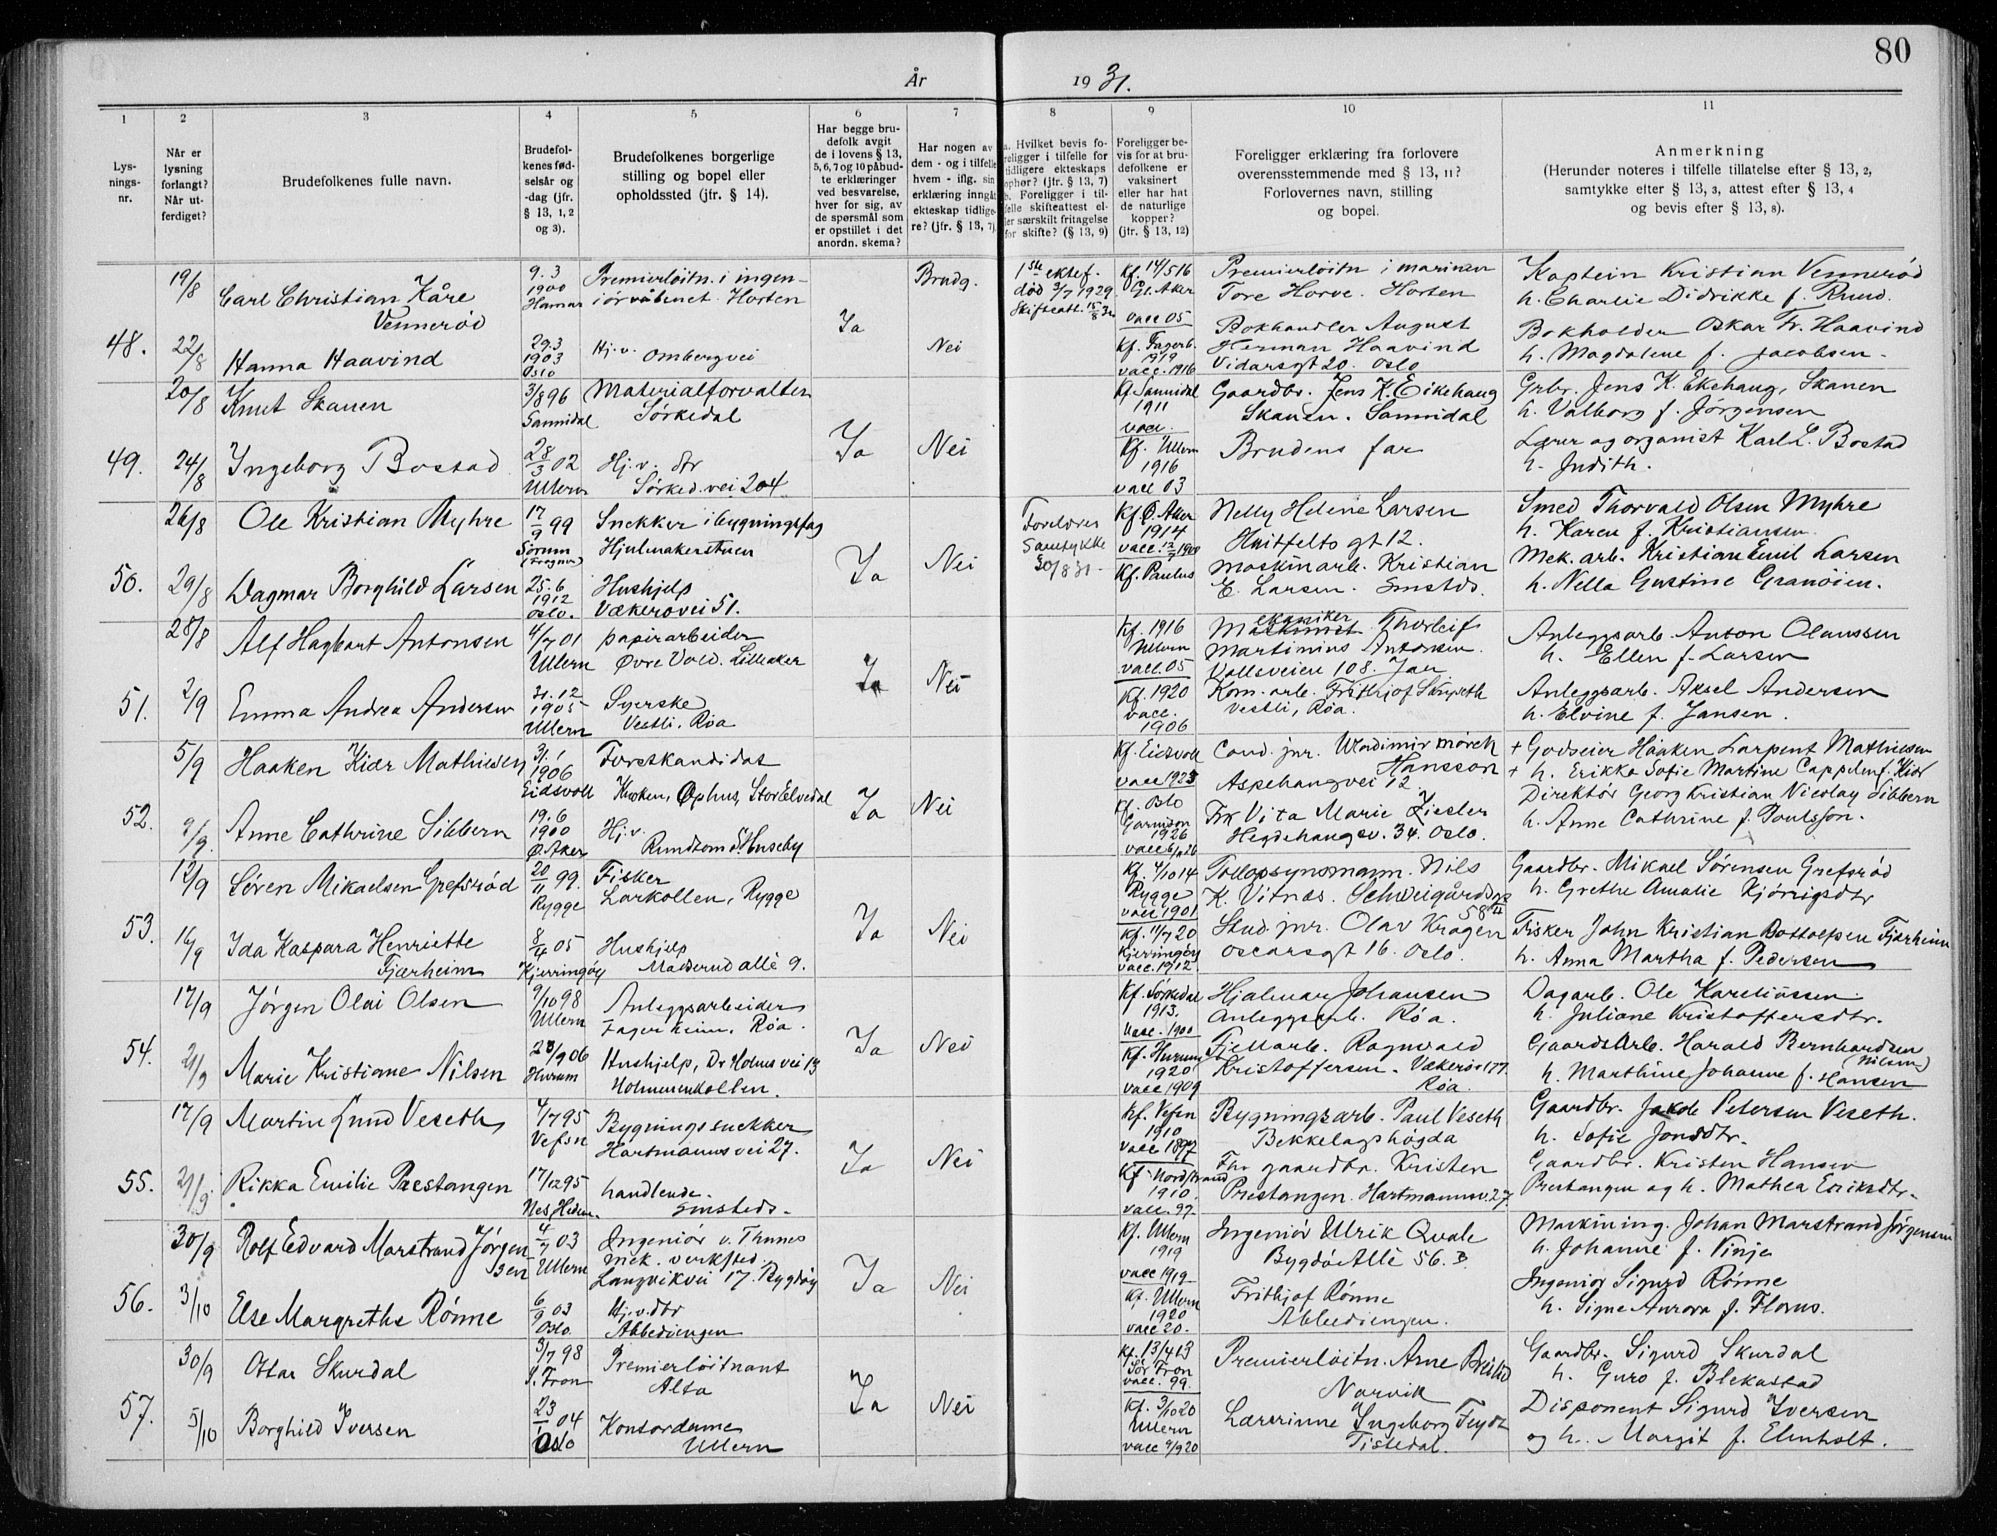 80
År 1931.
1 2 3 4 5 6 7 8 9 10 11
Lys-
nings-
nr.
Når er
lysning
forlangt?
Når ut-
ferdiget?
Brudefolkenes fulle navn.
Brudefol-
kenes fød-
selsår og
-dag (jfr.
§ 13, 1, 2
og 3).
Brudefolkenes borgerlige
stilling og bopel eller
opholdssted (jfr. § 14).
Har begge bru-
defolk avgit
de i lovens § 13,
5, 6, 7 og 10 påbud-
te erklæringer
ved besvarelse,
hver for sig, av
de spørsmål som
er opstillet i det
anordn. skema?
Har nogen av
dem - og i tilfelle
hvem - iflg. sin
erklæring inngåt
ekteskap tidlige-
re? (jfr. § 13, 7).
a. Hvilket bevis fo-
religger i tilfelle for
tidligere ekteskaps
ophør? (jfr. § 13, 7)
b. Foreligger i til-
felle skifteattest el-
ler særskilt fritagelse
for skifte? (§ 13, 9)
Foreligger be-
vis for at bru-
defolkene er
vaksinert
eller har hat
de naturlige
kopper?
(jfr. § 13, 12)
Foreligger erklæring fra forlovere
overensstemmende med § 13, 11?
Forlovernes navn, stilling
og bopel.
Anmerkning
(Herunder noteres i tilfelle tillatelse efter § 13, 2,
samtykke efter § 13, 3, attest efter § 13, 4
og bevis efter § 13, 8).
48.
19/8
22/8
Carl Christian Kåre
Vennerød
9.3
1900
Hamar
Premierløitn. i ingen-
iørvåbenet. Horten
Ja
Brudg.
1ste ektef.
død 3/7 1929.
Skifteatt. 15/8 31
Kf. 14/5 16
Gr. Aker
vacc 05
Premierløitn i marinen
Tore Horve. Horten
Kaptein Kristian Vennerød
h. Charlie Didrikke f. Ruud.
Hanna Haavind
29.3
1903
Oslo
Hj.v. Ombergvei
Nei
Kf. Fagerb.
1919
vacc. 1916
Bokhandler August
Herman Haavind
Vidarsgt 20. Oslo
Bokholder Oskar Fr. Haavind
h. Magdalene f. Jacobsen.
49.
20/8
24/8
Knut Skanen
3/8 96
Sannidal
Materialforvalter
Sørkedal
Ja
Nei
Kf. Sannidal
1911
vacc.
Gaardbr. Jens K. Eikehaug
Skanen. Sannidal
Grbr. Jens K. Ekehaug, Skanen
h. Valborg f. Jørgensen
Ingeborg Bostad
28/3 02
Ullern
Hj.v. dtr
Sørked.vei 204
Kf. Ullern
1916
vacc 03
Brudens far
Lærer og organist Karl L. Bostad
h. Judith.
50.
26/8
29/8
Ole Kristian Myhre
17/9 99
Sørum
(Frogner)
Snekker i bygningsfag
Hjulmakerstuen
Ja
Nei
Foreldres
Samtykke
30/8 31
Kf. Ø. Aker
1914
Nelly Helene Larsen
Huitfelts gt 12.
Smed Thorvald Olsen Myhre
h. Karen f. Kristiansen.
Dagmar Borghild Larsen
25.6
1912
Oslo.
Hushjelp
Vækerøvei 51.
Kf. Paulus
Maskinarb. Kristian
E. Larsen. Smsteds.
Mek. arb. Kristian Emil Larsen
h. Nella Gustine Granøien.
51.
28/8
2/9
Alf Hagbart Antonsen
4/7 01
Ullern
papirarbeider
Øvre Vold. Lilleaker
Ja
Nei
Kf. 1916
Ullern
vacc. 05
Mekaniker Thorleif
Martinius Antonsen.
Vollsveien 108. Jar
Anleggsarb. Anton Olaussen
h. Ellen f. Larsen
Emma Andrea Andersen
31.12
1905
Ullern
Syerske
Vestli. Røa
Kf. 1920
vacc.
1906
Kom. arb. Frithjof
Vestli, Røa.
Anleggsarb. Aksel Andersen
h. Elvine f. Jansen.
52.
5/9
9/9.
Haaken Kiær Mathiesen
31.1
1906
Eidsvoll
Forstkandidat
Kroken, Ophus, Stor Elvedal
Ja
Nei
Kf. Eidsvoll
vacc 1923
Cand. jur. Wordimir Mörch
Hansson
Aspehaugvei 12
+ Godseier Haaken Larpent Mathiesen
+ h. Erikka Sofie Martine Cappelen f. Kiær
Anne Cathrine Sibbern
19.6
1900
Ø. Aker
Hj.v.
Rundtom St. Huseby
Kf. Oslo
Garnison
1926
Frk Vita Marie Ziesler
Hegdehaugsv. 34. Oslo.
Direktør Georg Kristian Nicolay Sibbern
h. Anne Cathrine f. Poulsson.
53.
12/9
16/9
Søren Mikaelsen Grefsrød
20/11 99.
Rygge
Fisker
Larkollen, Rygge
Ja
Nei
Kf. 4/10 14
Rygge
vacc 1901
Tolloppsynsmann. Nils
K. Vitnes. Schweigårdsgt
58
Gaardbr. Mikael Sørensen Grefsrød
h. Grethe Amalie Kjørrigsdtr
Ida Kaspara Henriette
Fjærheim
8/4 05
Kjerringøy
Hushjelp
Madserud allé 9.
Kf. 11/7 20
Kjerringøy
vacc. 1912
Stud. jur. Olav Kragen
Oscarsgt 16. Oslo.
Fisker John Kristian Bottolfsen Fjærheim
h. Anna Martha f. Pedersen
54.
17/9
21/9
Jørgen Olai Olsen
9/10 98
Ullern
Anleggsarbeider
Fagerheim. Røa.
Ja
Nei
Kf. Sørkedal
1913.
Vacc. 1900
Hjalmar Johansen
Anleggsarb. Røa.
Dagarb. Ole Kareliussen
h. Juliane Kristoffersdtr.
Marie Kristiane Nilsen
23/9 06
Hurum
Hushjelp, Dr Holms vei 13
Holmenkollen.
Kf. Hurum
1920
vacc 1909
Fjellarb. Ragnvald
Kristoffersen. Vækerøv 177
Røa.
Gaardsarb. Harald Bernhardsen
(Nilsen)
h. Marthine Johanne f. Hansen
55.
17/9
21/9
Martin Lund Veseth
4/7 95
Vefsn
Bygningssnekker
Hartmanns vei 27.
Ja
Nei
Kf. Vefsn
1910
vacc 1897
Bygningsarb. Paul Veseth
Bekkelagshøgda
Gaardbr. Jakob Petersen Veseth.
h. Sofie Jonsdtr.
Rikka Emilie Prestangen
17/12 95
Nes, Hedm.
handlende.
Smsteds.
Kf. Nordstrand
1910.
vacc. 97.
Fhv gaardbr. Kristen
Prestangen. Hartmannsv. 27.
Gaardbr. Kristen Hansen
Prestangen og h. Mathea Eriksdtr.
56.
30/9
3/10
Rolf Edvard Marstrand Jørgen-
sen
4/7 03
Ullern
Ingeniør v. Thunes
mek. verksted
Langvikvei 17. Bygdøy
Ja
Nei
Kf. Ullern
1919
vacc 1919
Ingeniør Ulrik Qvale
Bygdø Allé 56. B
Maskining. Johan Marstrand Jørgensen
h. Johanne f. Vinje
Else Margrethe Rønne
6/9 03
Oslo.
Hj.v. dtr
Abbediengen
Kf. Ullern
1920
vacc 20.
Frithjof Rønne
Abbediengen.
Ingeniør Sigurd Rønne
h. Signe Aurora f. Florus.
57.
30/9
5/10
Ottar Skurdal
3/7 98
S. Fron
Premierløitnant
Alta
Ja
Nei
Kf. 13/4 13
Sør Fron
vacc. 99.
Premierløitn. Arne
Narvik
Gaardbr. Sigurd Skurdal
h. Guro f. Blekastad
Borghild Iversen
23/1 04
Oslo
Kontordame
Ullern
Kf. 3/10 20
Ullern
vacc 9/9 20
Lærerinne Ingeborg
Tistedal.
Disponent Sigurd Iversen
og h. Margit f. Elmholt.